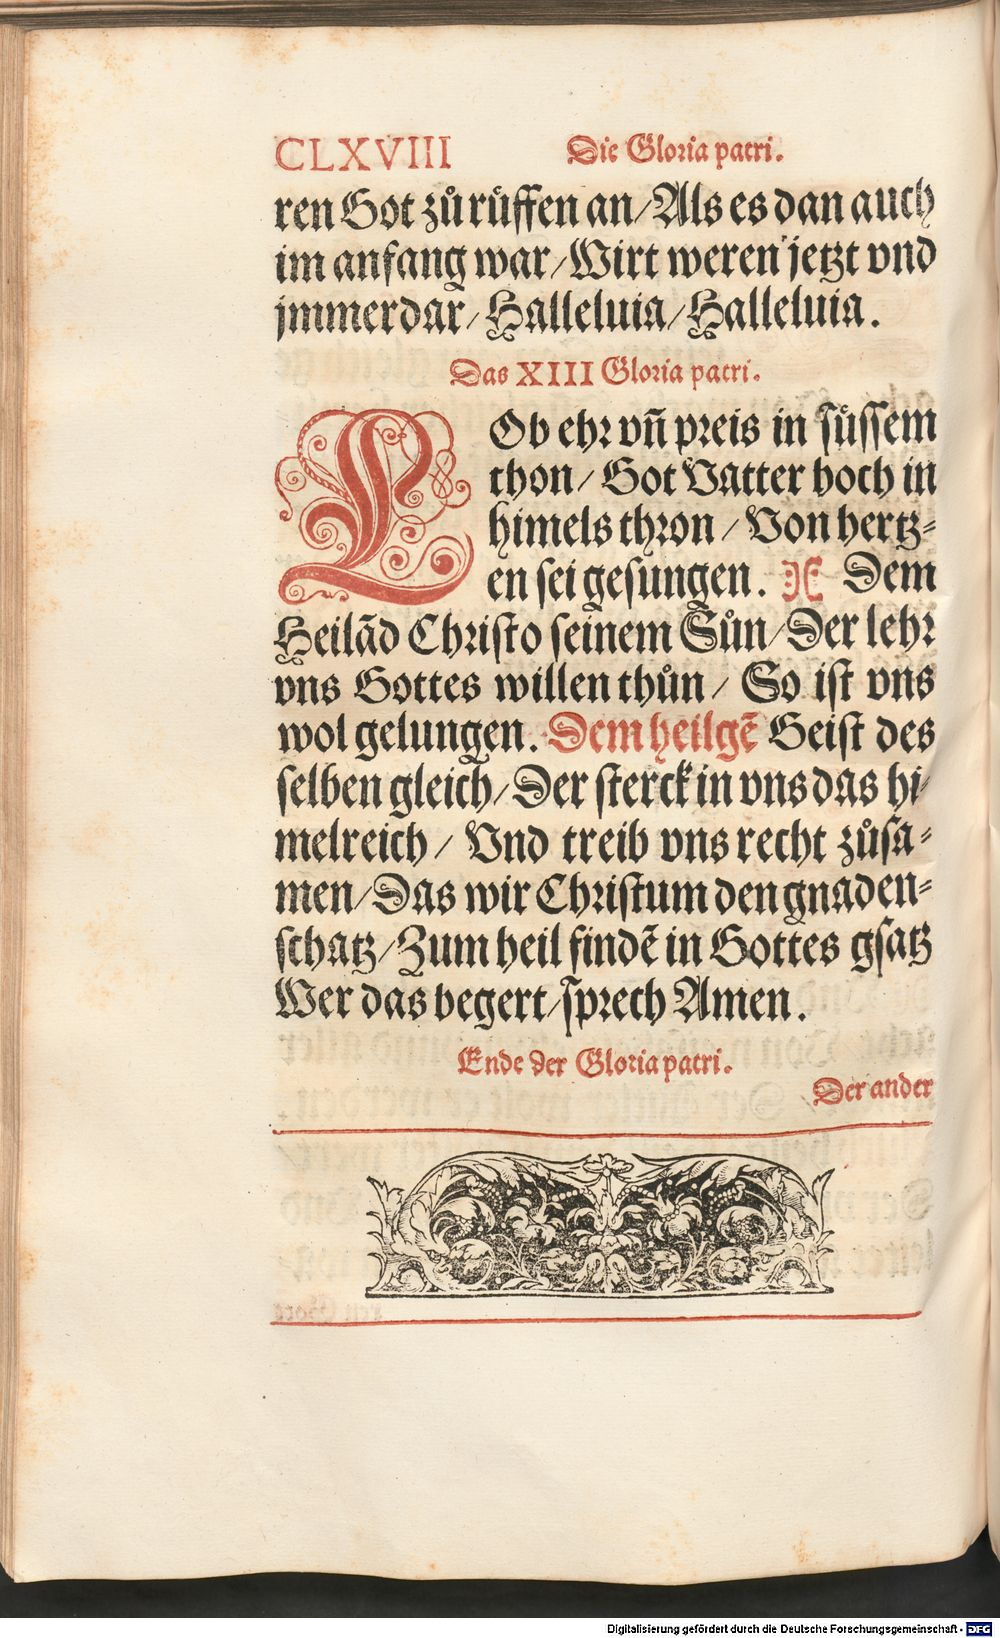 CLXVIII Die Gloria patri.
ren Got zů růffen an/Als es dan auch
im anfang war/Wirt weren jetzt vnd
jmmerdar/Halleluia/Halleluia.
Das XIII Gloria patri.
LOb ehr vn̄ preis in süssem
thon/Got Vatter hoch in
himels thron/Von hertz⸗
en sei gesungen. Dem
Heilād Christo seinem Sůn/Der lehr
vns Gottes willen thůn/So ist vns
wol gelungen. Dem heilgē Geist des
selben gleich/Der sterck in vns das hi⸗
melreich/Vnd treib vns recht zůsa⸗
men/Das wir Christum den gnaden⸗
schatz/Zum heil findē in Gottes gsatz
Wer das begert/sprech Amen.
Ende der Gloria patri.
Der ander
Digitalisierung gefördert durch die Deutsche Forschungsgemeinschaft - DFG